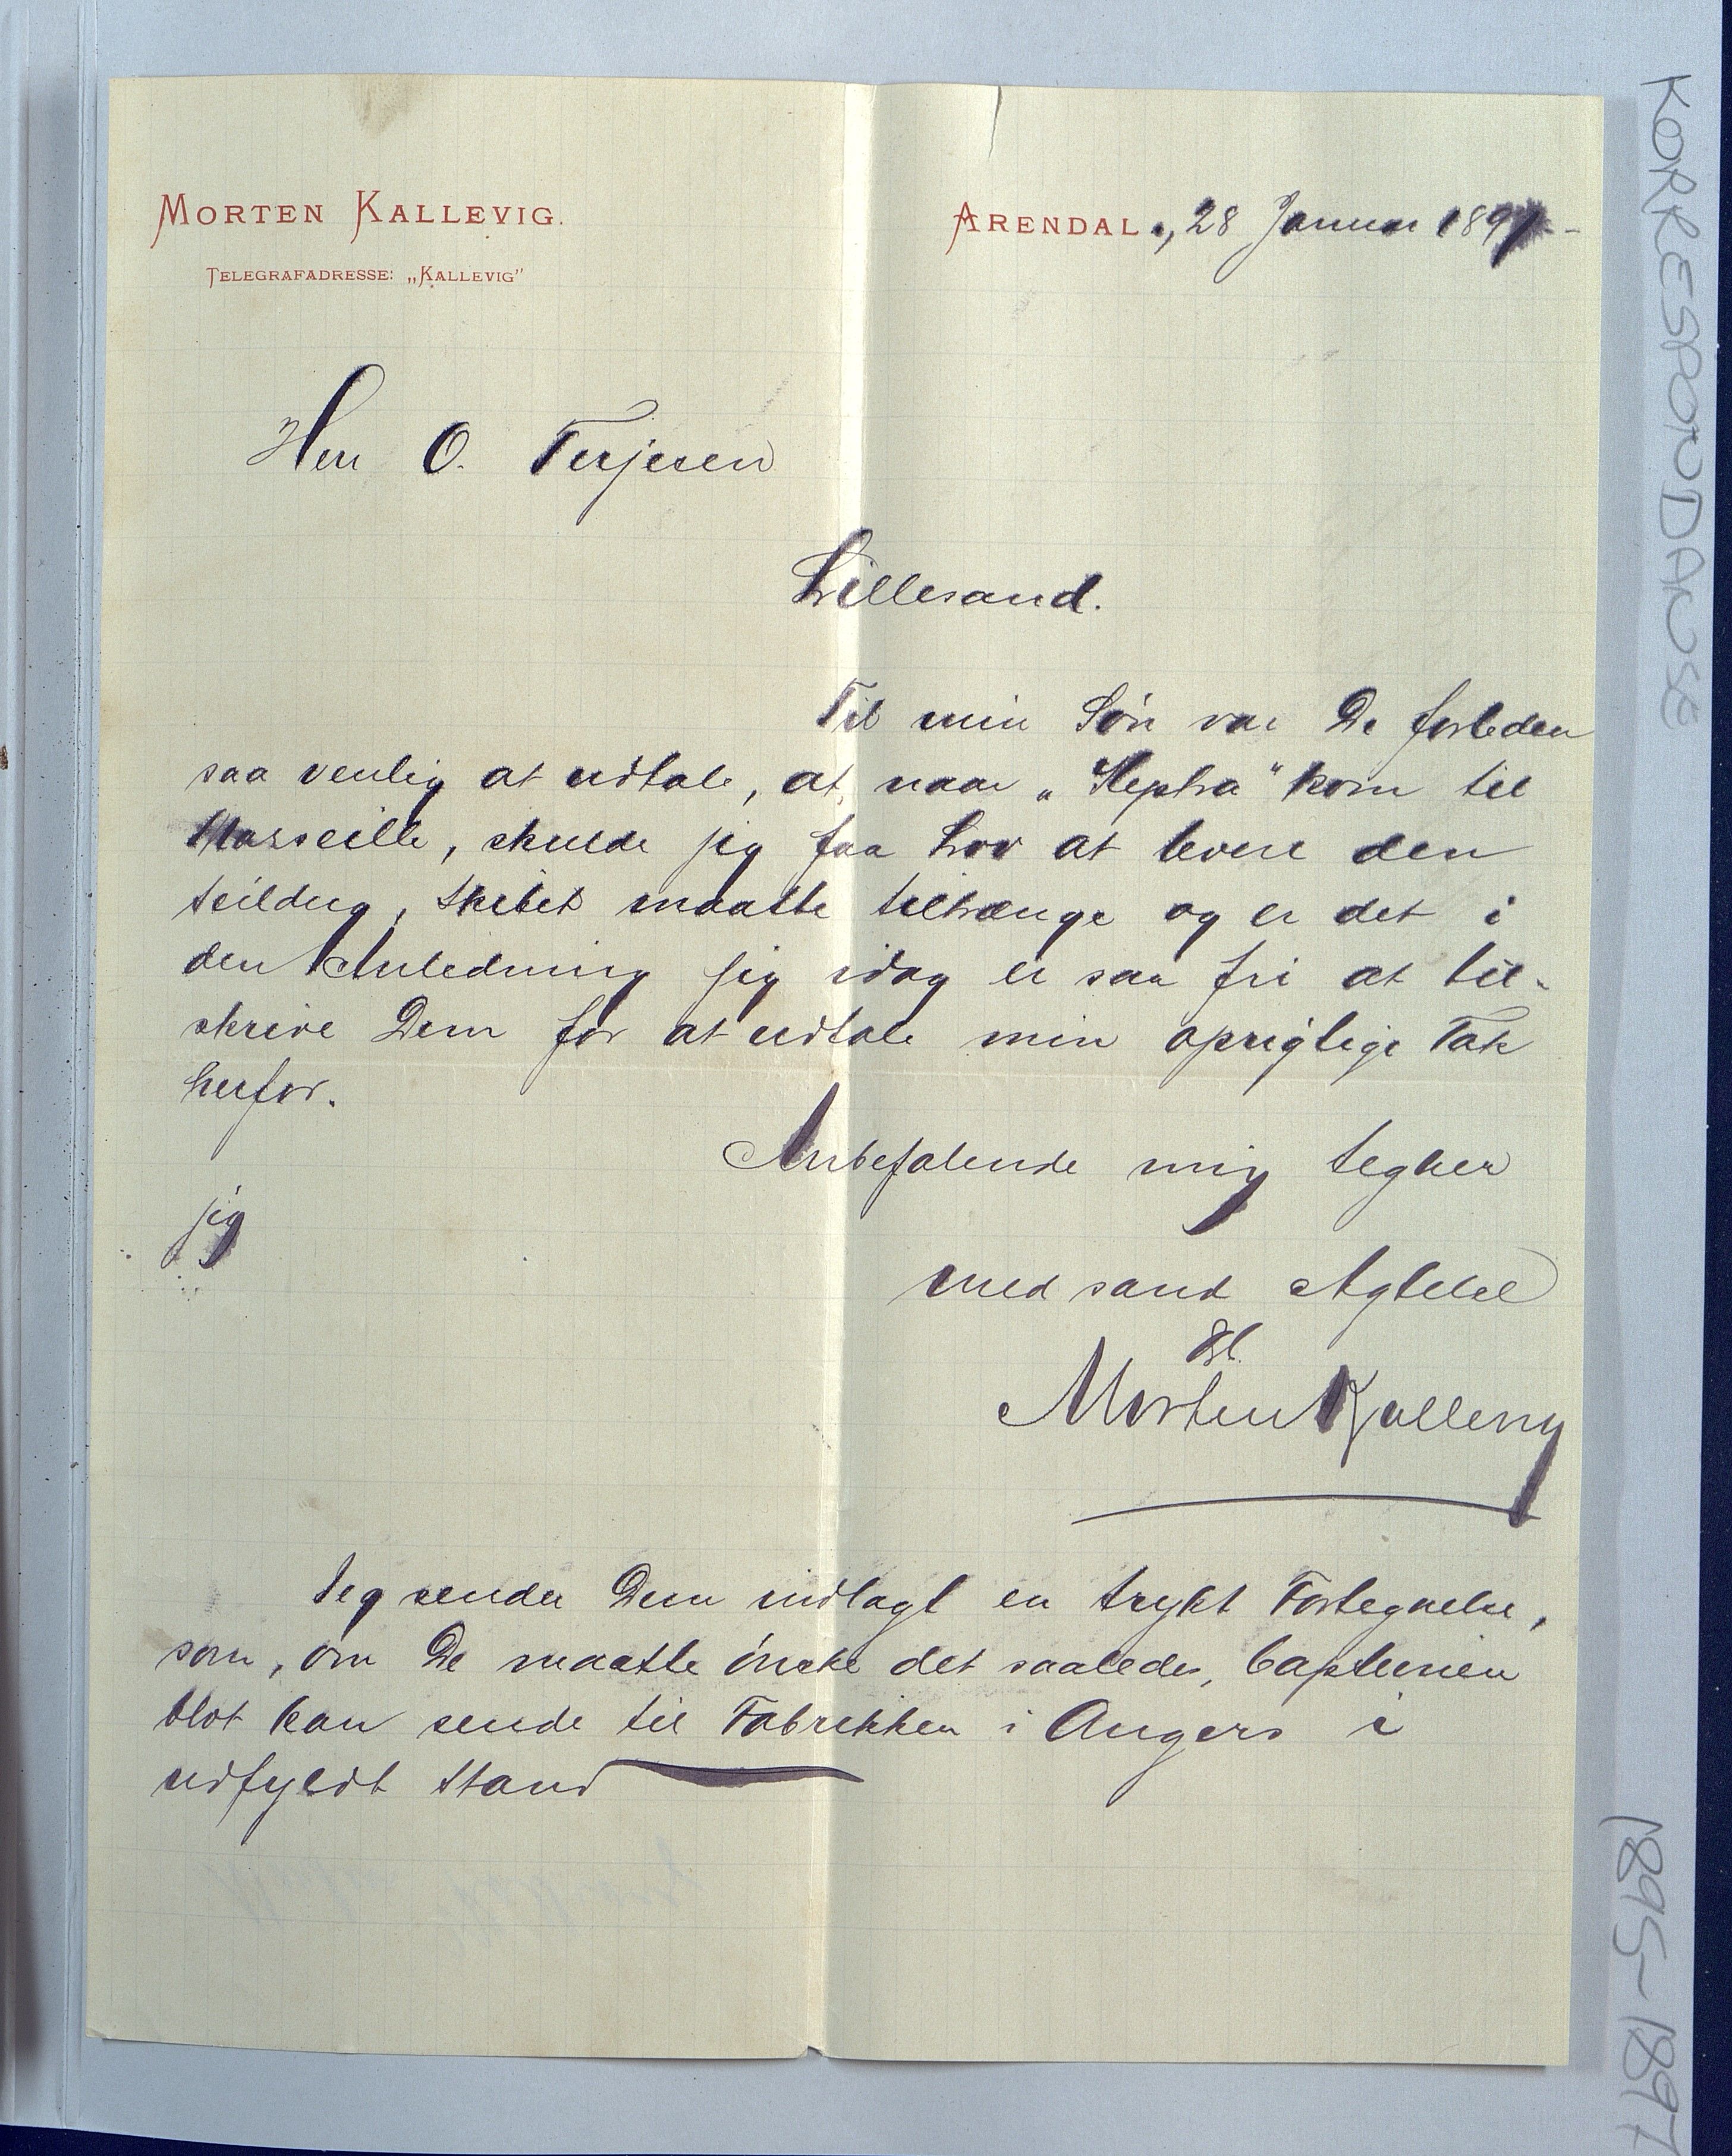 MORTEN KALLEVIG.
TELEGRAFADRESSE: „KALLEVIG"
ARENDAL., 28 Januar 1897
Herr O. Terjesen
Lillesand.
Til min Søn var De forleden
saa venlig at udtale, at, naar „Heptra" kom til
Marseille, skulde jeg faa Lov at levere den
Seildug, Skibet maatte tiltrænge og er det i
den Anledning jeg idag er saa fri at til-
skrive Dem for at udtale min oprigtige Tak
herfor.
Anbefalende mig tegner
jeg
med sand Agtelse
Morten Kallevig
Jeg sender Dem indlagt en trykt Fortegnelse,
som, om De maatte ønske det saaledes, Capteinen
blot kan sende til Fabrikken i Angers i
udfyldt Stand
KORRESPONDANSE
1895-1897